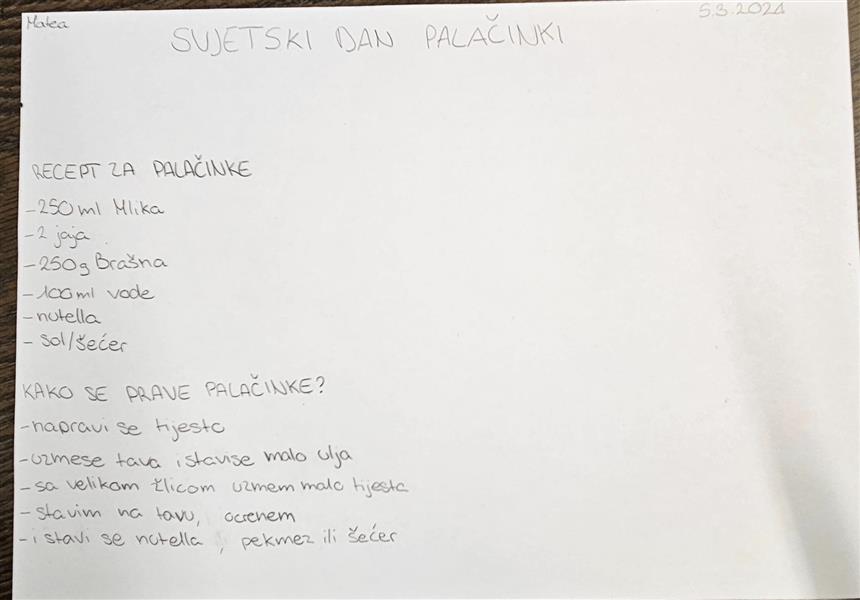 Matea
5.3.2024
SVJETSKI DAN PALAČINKI
RECEPT ZA PALAČINKE
-250ml Mlika
-2 jaja
-250g Brašna
-100ml vode
-nutella
- sol/šećer
KAKO SE PRAVE PALAČINKE?
-napravi se tijesto
-uzmese tava i stavise malo ulja
-sa velikom žlicom uzmem malo tijesta
-stavim na tavu, ocrenem
-i stavi se nutella, pekmez ili šećer